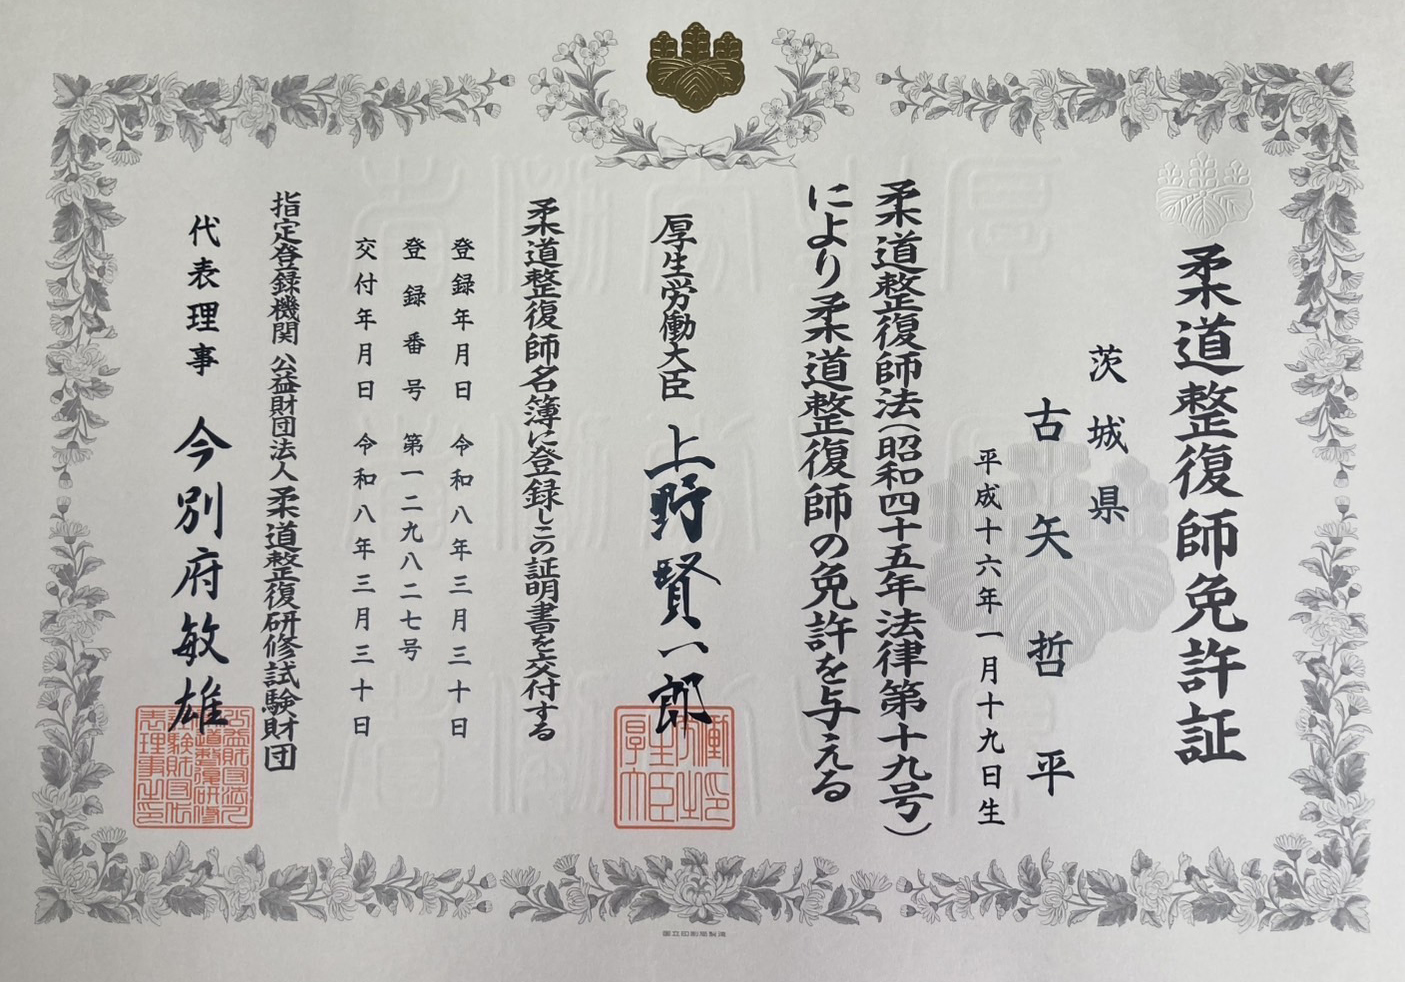 柔道整復師免許証
茨城県
古矢哲平
平成十六年一月十九日生
柔道整復師法（昭和四十五年法律第十九号）
により柔道整復師の免許を与える
厚生労働大臣 上野賢一郎
柔道整復師名簿に登録しこの証明書を交付する
登録年月日 令和八年三月三十日
登録番号 第一二九八二七号
交付年月日 令和八年三月三十日
指定登録機関 公益財団法人 柔道整復研修試験財団
代表理事 今別府敏雄
国立印刷局製造